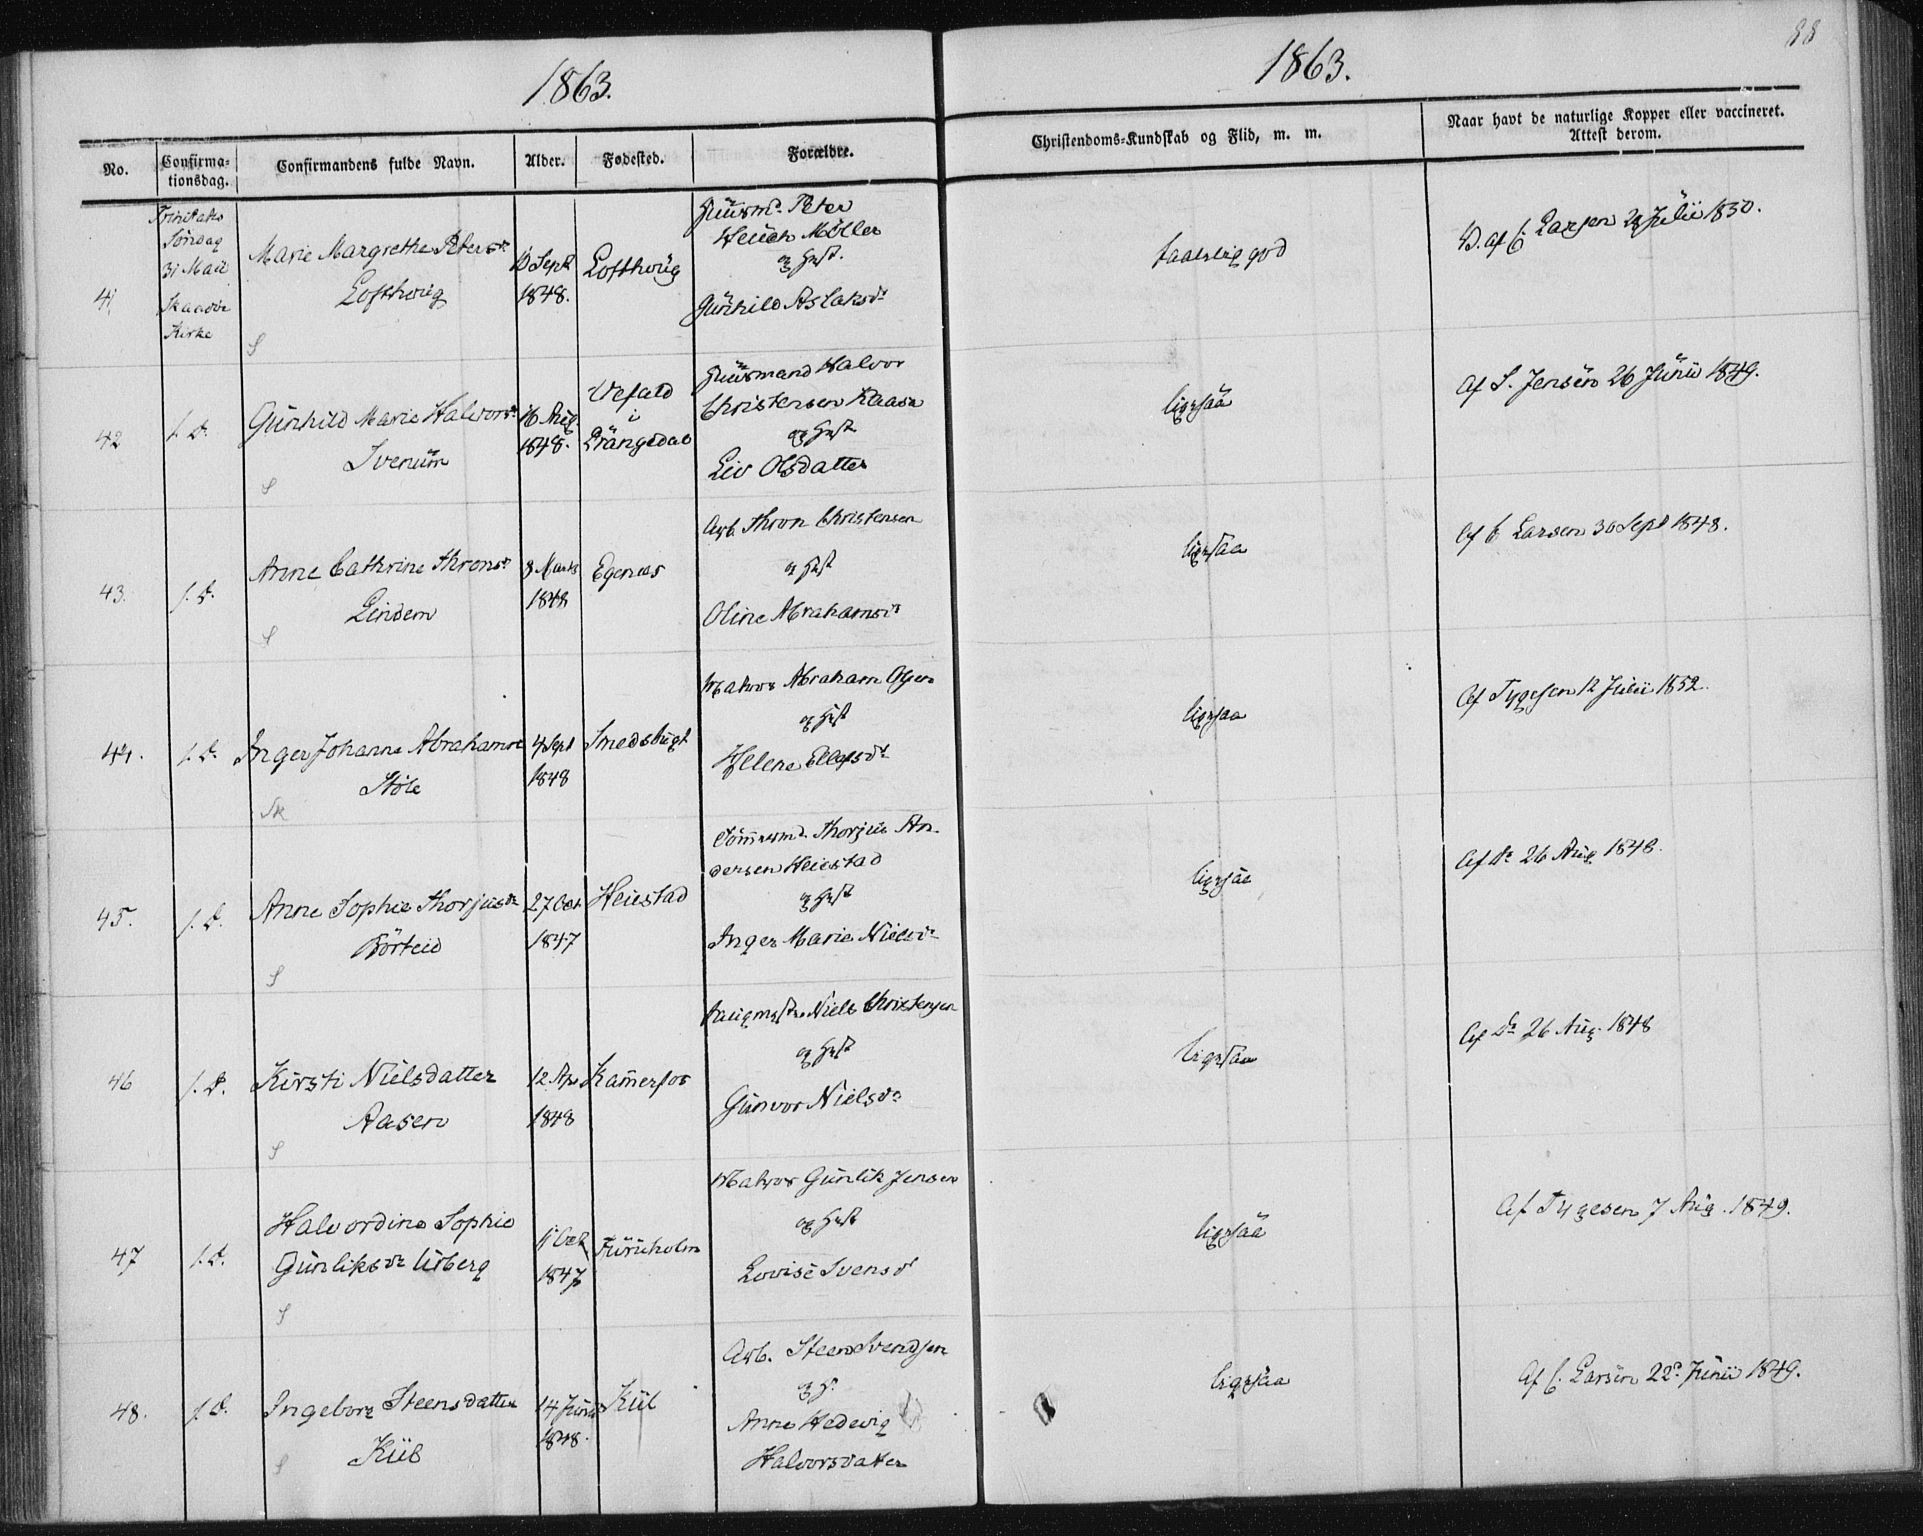 88
1863.
1863.
No.
Confirma-
tionsdag.
Confirmandens fulde Navn.
Alder.
Fødested.
Forældre.
Christendoms-Kundskab og Flid, m. m.
Naar havt de naturlige Kopper eller vaccineret.
Attest derom.
41
Trinitatis
Søndag
31 Maii
Skaadø
Kirke
Marie Margrethe Petersdr
Lofthoug
Sept
1848.
Lofthoug
Huusmd. Peter
Møller
og Hust.
Gunhild Aslaksdr
taalelig god
V. af C. Larsen 28 Julii 1850.
S
42
s. D.
Gunhild Marie Halvorsdr
Svenum
16 Aug.
1848.
Vefald
i
Drangedal
Huusmand Halvor
Christensen Raasa
og Hust
Liv Olsdatter
ligesaa
Af S. Jensen 26 Junii 1849.
S
43.
s. D.
Anne Cathrine Thronsdr
Lindem
3 Marts
1848
Egenæs
Arb. Thron Christensen
og Hust
Oline Abrahamsdr
ligesaa
Af C Larsen 30 Sept 1848.
S
44.
s. D.
Inger Johanne Abrahamsdr
Støle
4 Sept
1848
Smedsbugt
Matros Abraham Olsen
og Hust
Helene Ellefsdr
ligesaa
Af Tygesen 12 Julii 1852.
Sk
45.
s. D.
Anne Sophie Thorjusdr
Børteid
27 Oct.
1847
Heiestad
Tømmermd. Thorjus An-
dersen Heiestad
og Hust
Inger Marie Nielsdr
ligesaa
Af Do 26 Aug. 1848.
S
46
s. D.
Kirsti Nielsdatter
Aasen
12 Apr
1848
Kamerfos
Saugmester Niels Christensen
og Hust
Gunvor Nielsdr
ligesaa
Af Do 26 Aug. 1848
S
47
s. D.
Halvordine Sophie
Gunliksdr Urberg
11 Oct
1847
Furuholm
Matros Gunlik Jensen
og Hust
Lovise Svensdr
ligesaa
Af Tygesen 7 Aug. 1849.
S
48.
s. D.
Ingeborg Steensdatter
Kiil
14 Junii
1848.
Kiil
Arb. Steen Svendsen
og H.
Anne Hedevig
Halvorsdatter
ligesaa
Af C. Larsen 22de Junii 1849.
S